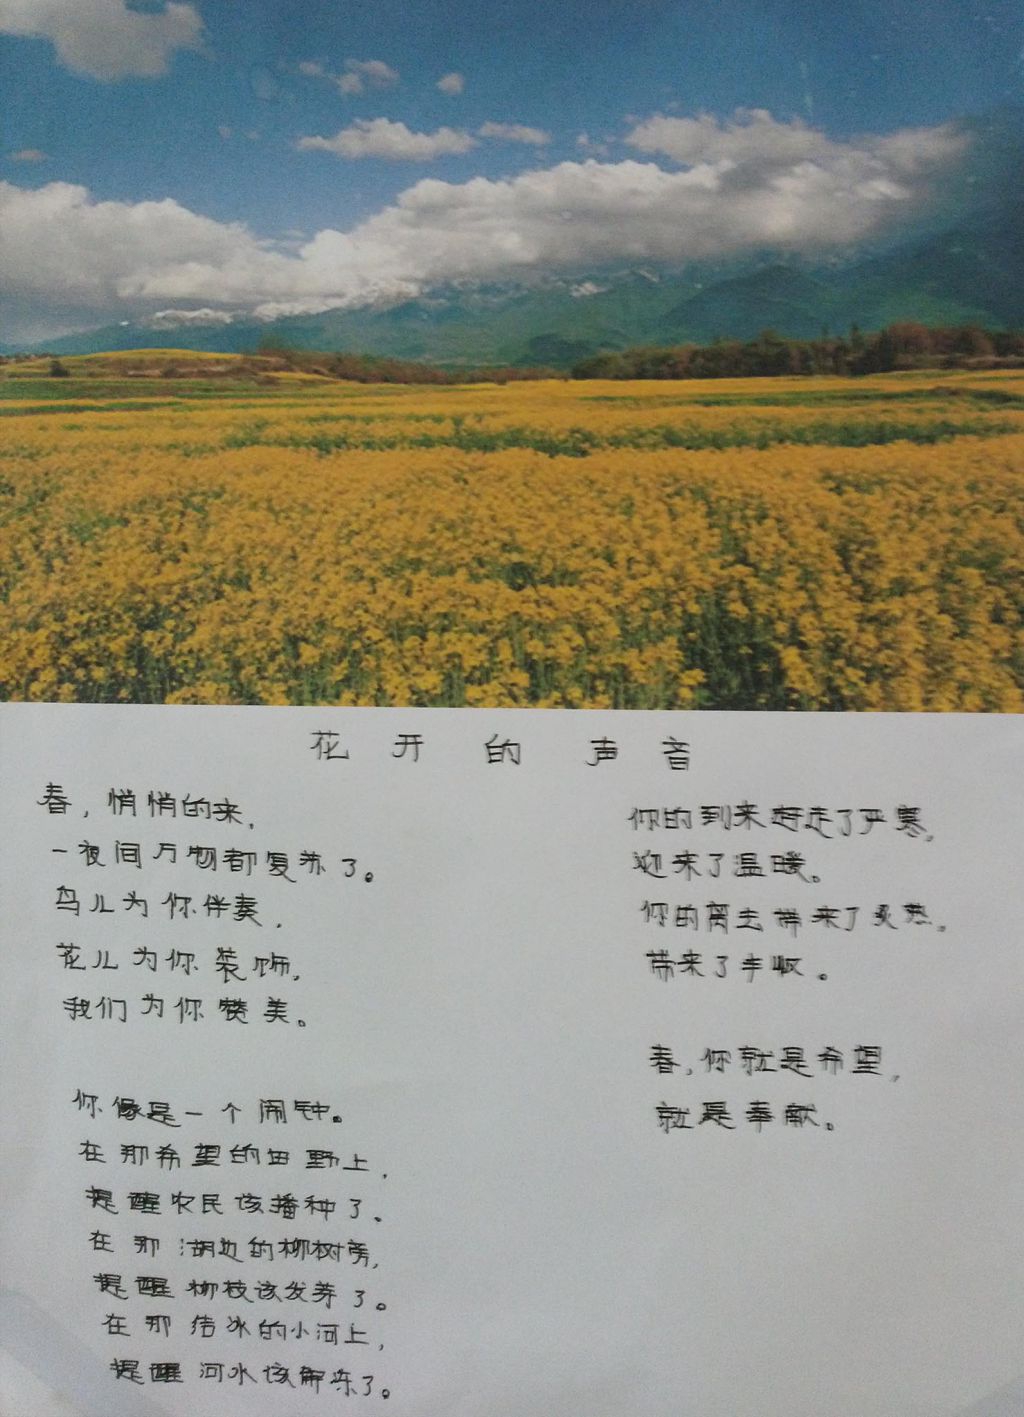 花开的声音
春，悄悄的来，
一夜间万物都复苏了。
鸟儿为你伴奏，
花儿为你装饰，
我们为你赞美。
你像是一个闹钟。
在那希望的田野上，
提醒农民该播种了。
在那湖边的柳树旁，
提醒柳枝该发芽了。
在那结冰的小河上，
提醒河水该解冻了。
你的到来赶走了严寒，
迎来了温暖。
你的离去带来了炎热。
带来了丰收。
春，你就是希望，
就是奉献。